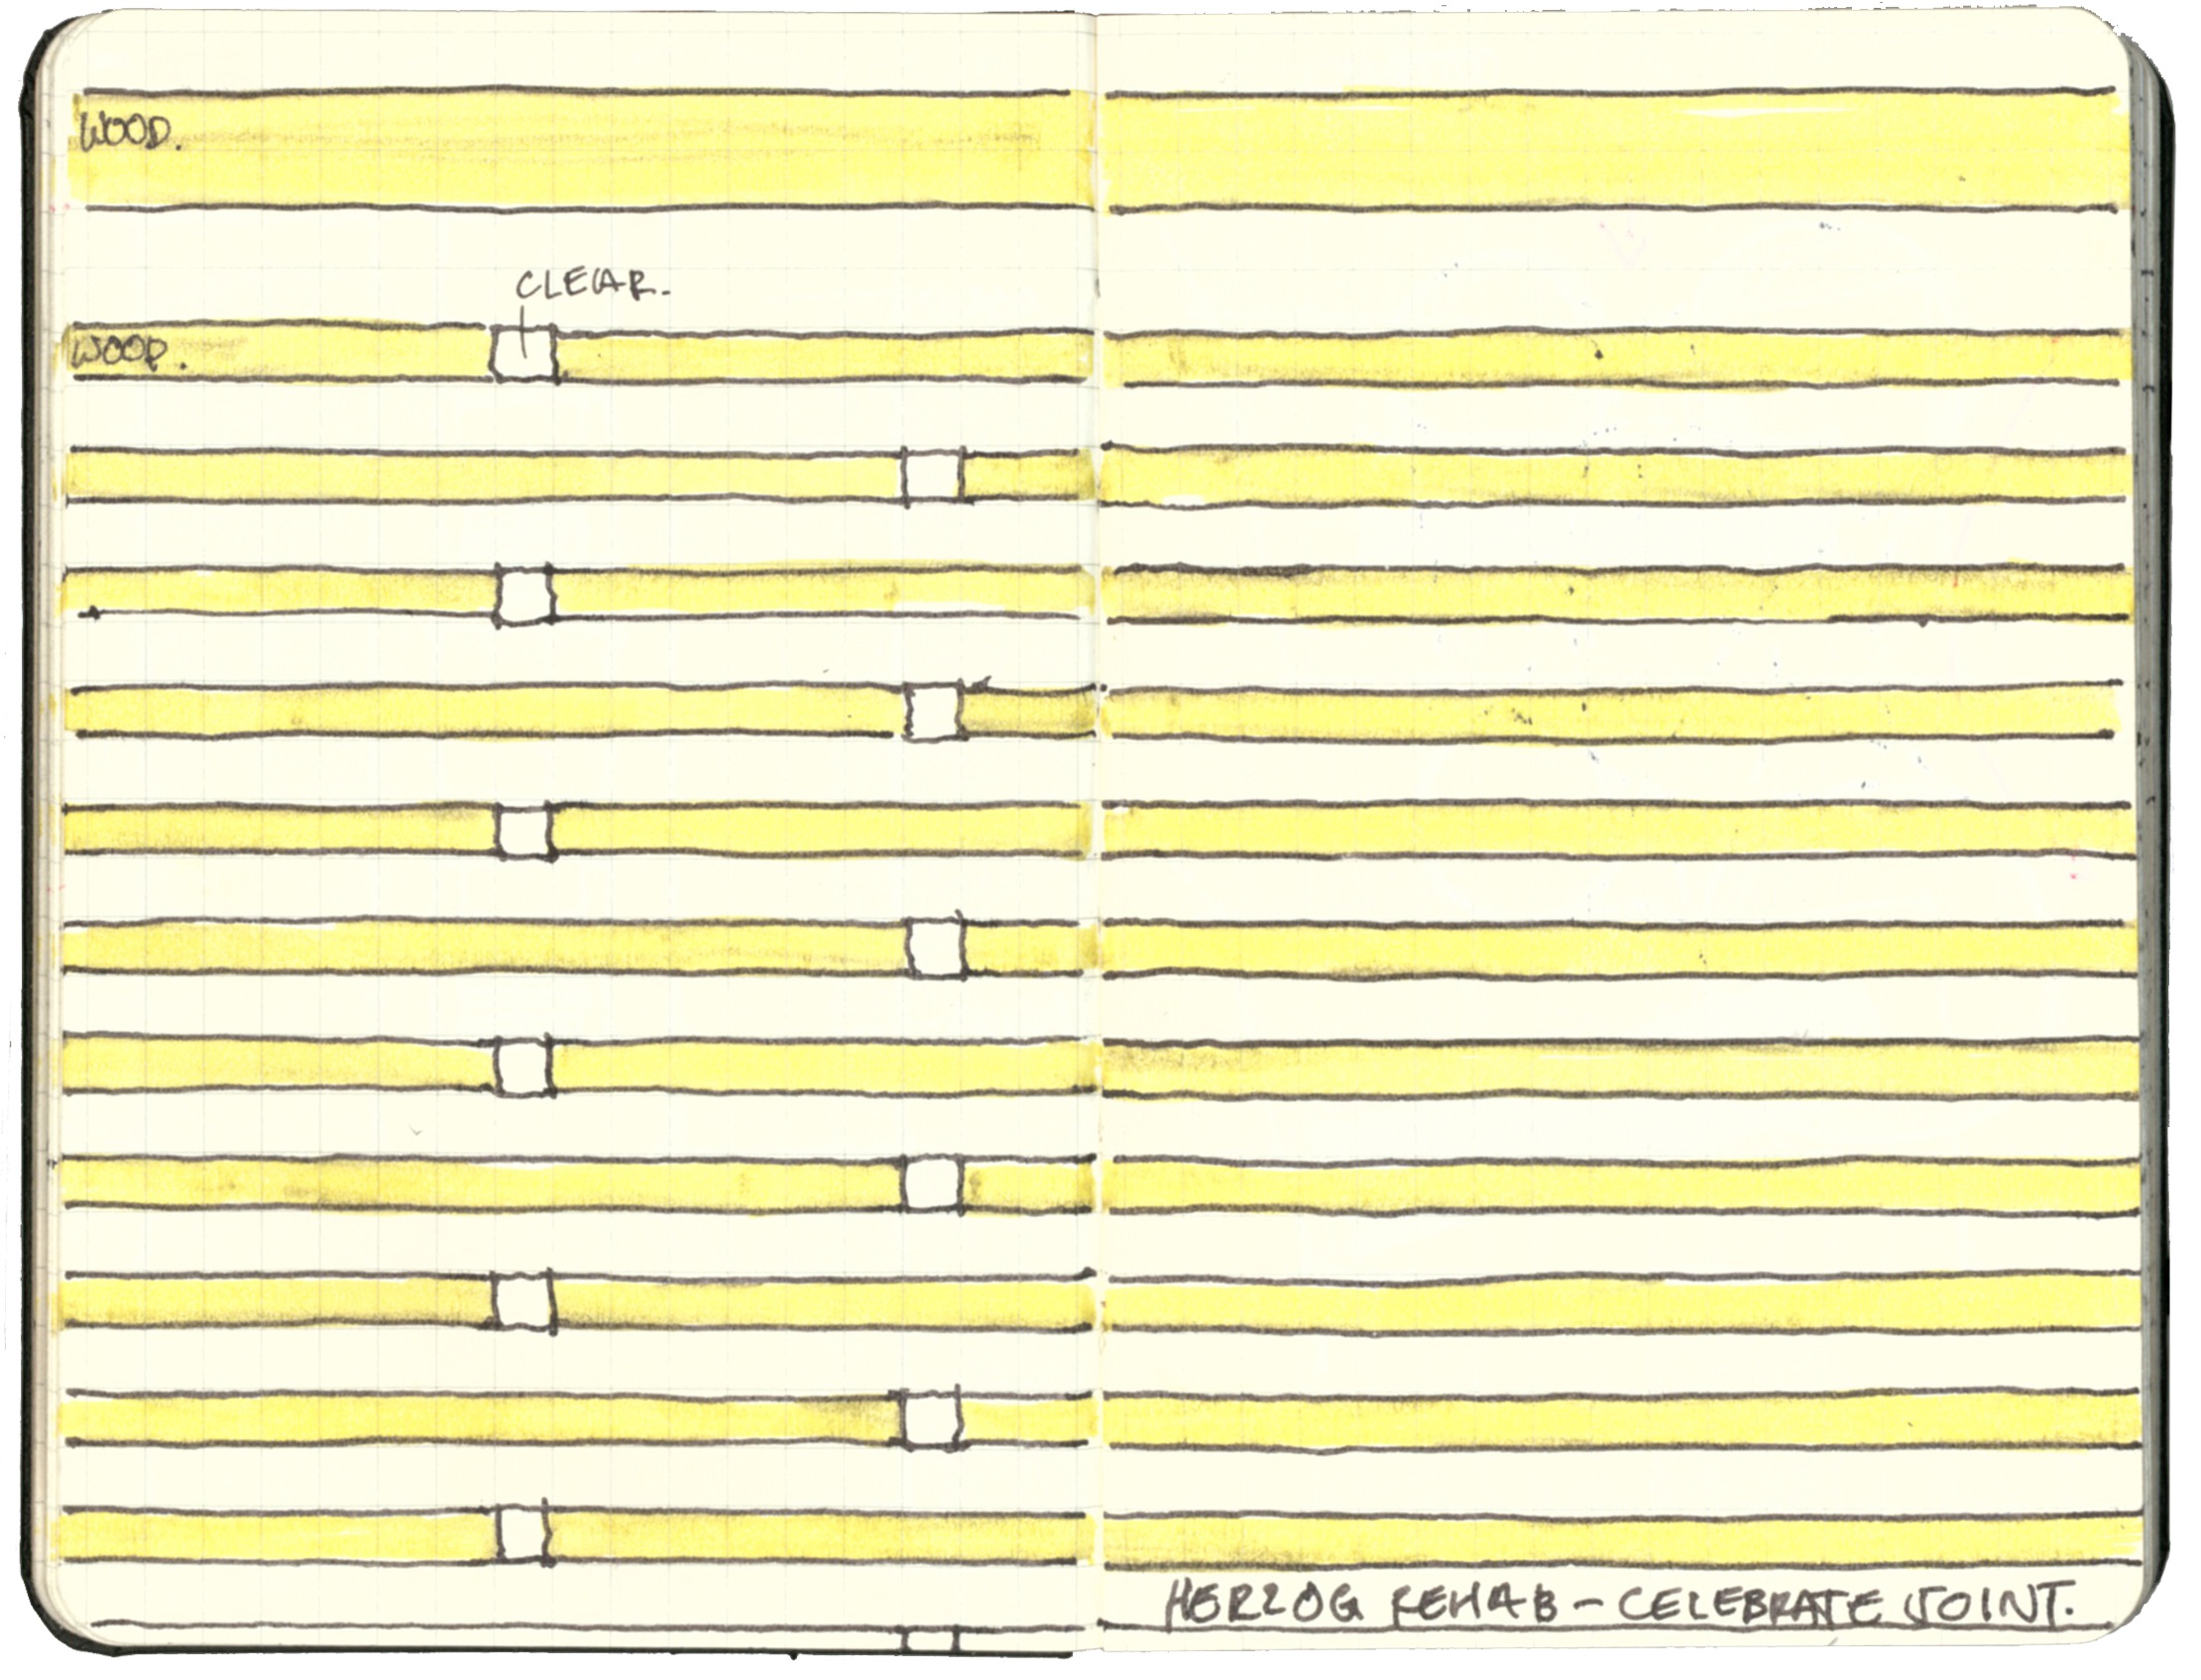 WOOD.
CLEAR.
WOOD.
HERZOG REHAB - CELEBRATE JOINT.